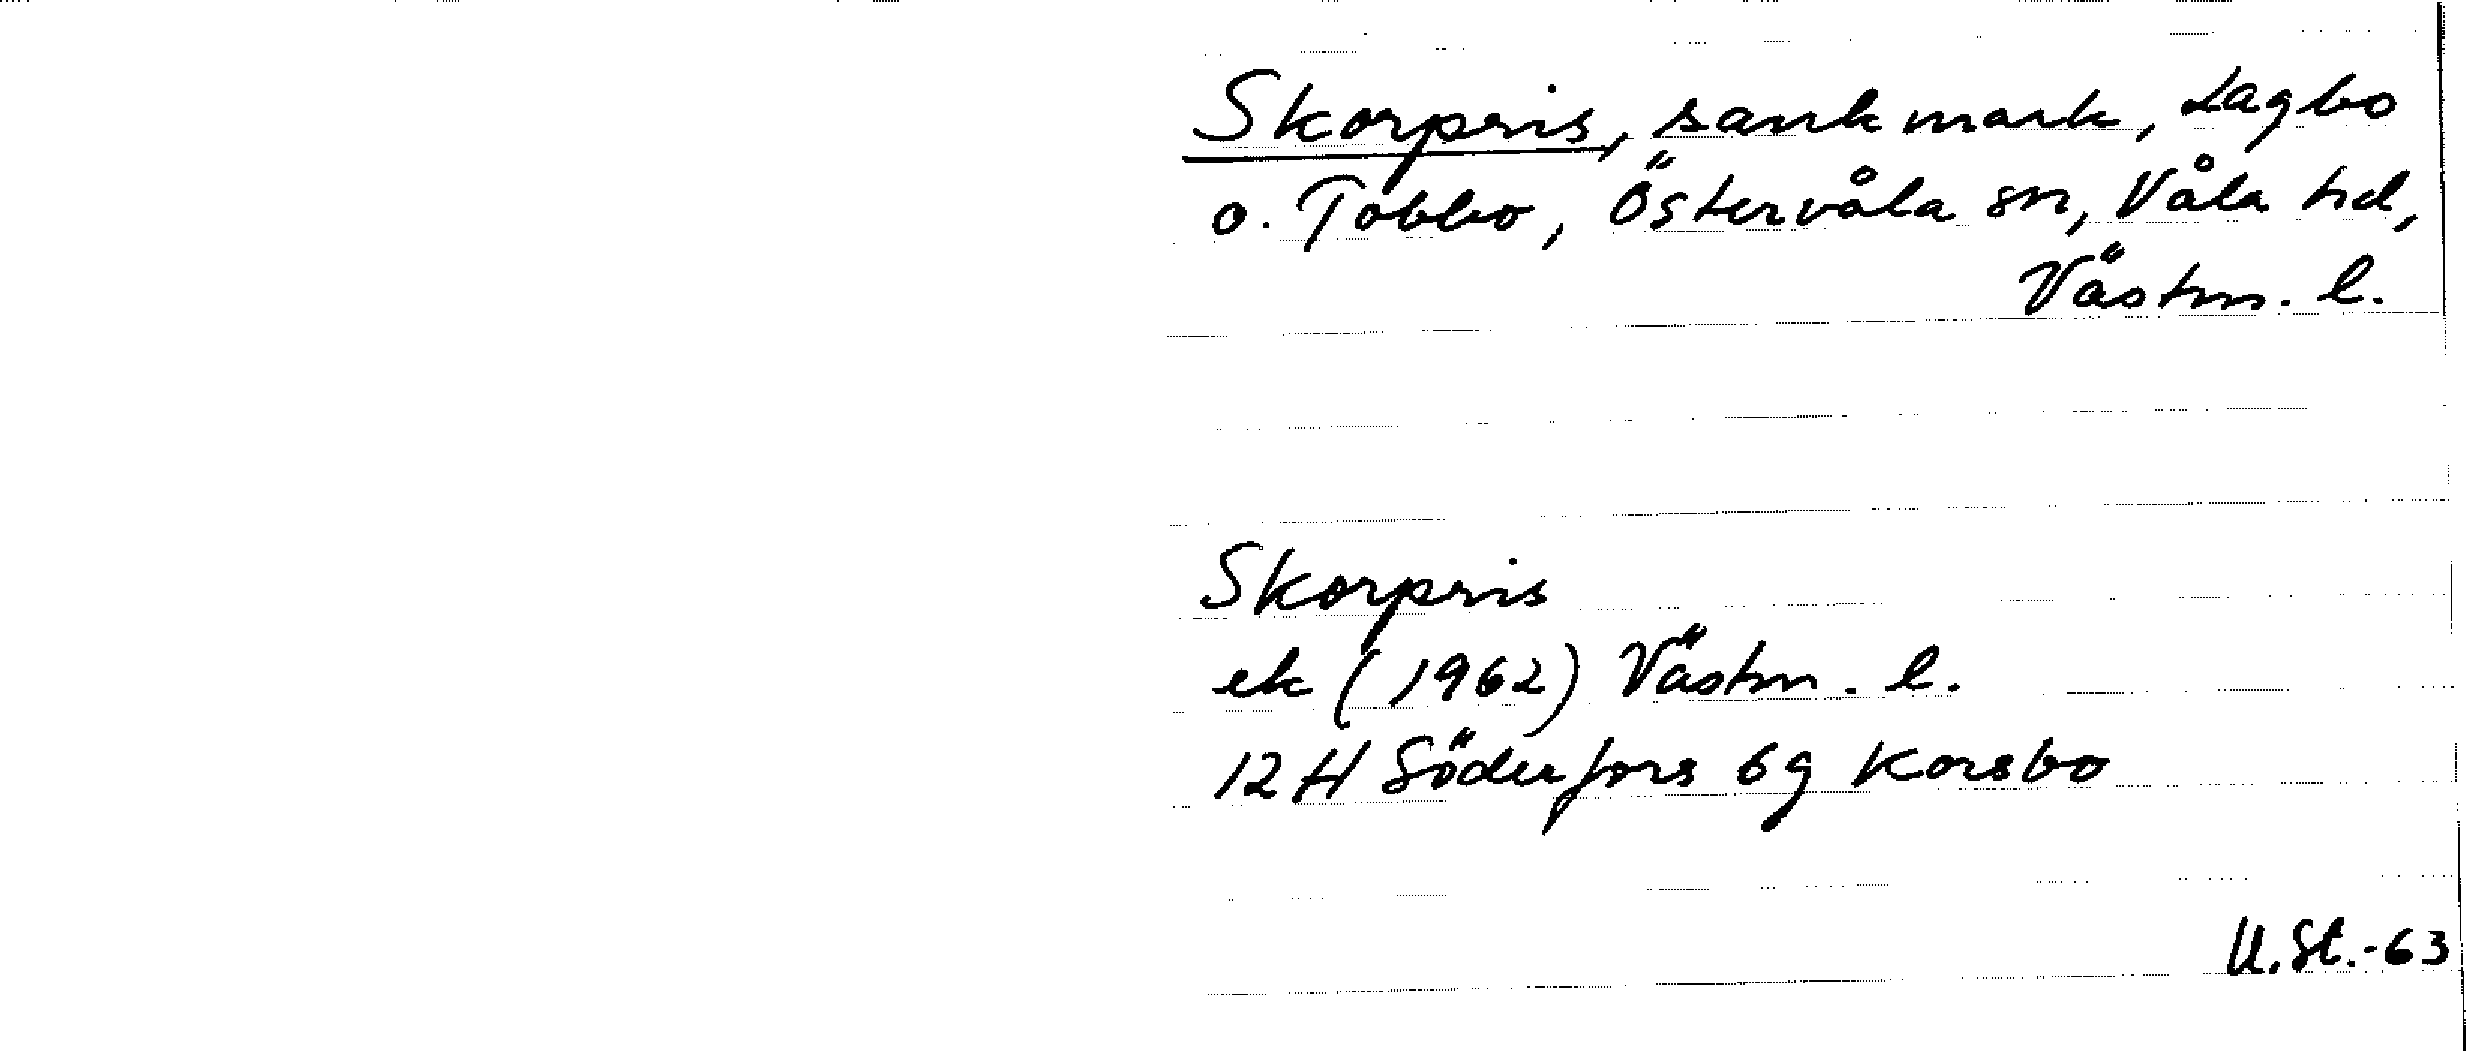 Skorpris, sankmark, Lagbo
o. Tobbo, Östervåla sn, Våla hd,
Västm. l.
Skorpris
ek (1962) Västm. l.
12 H Söderfors 6g Korsbo
U. St. -63